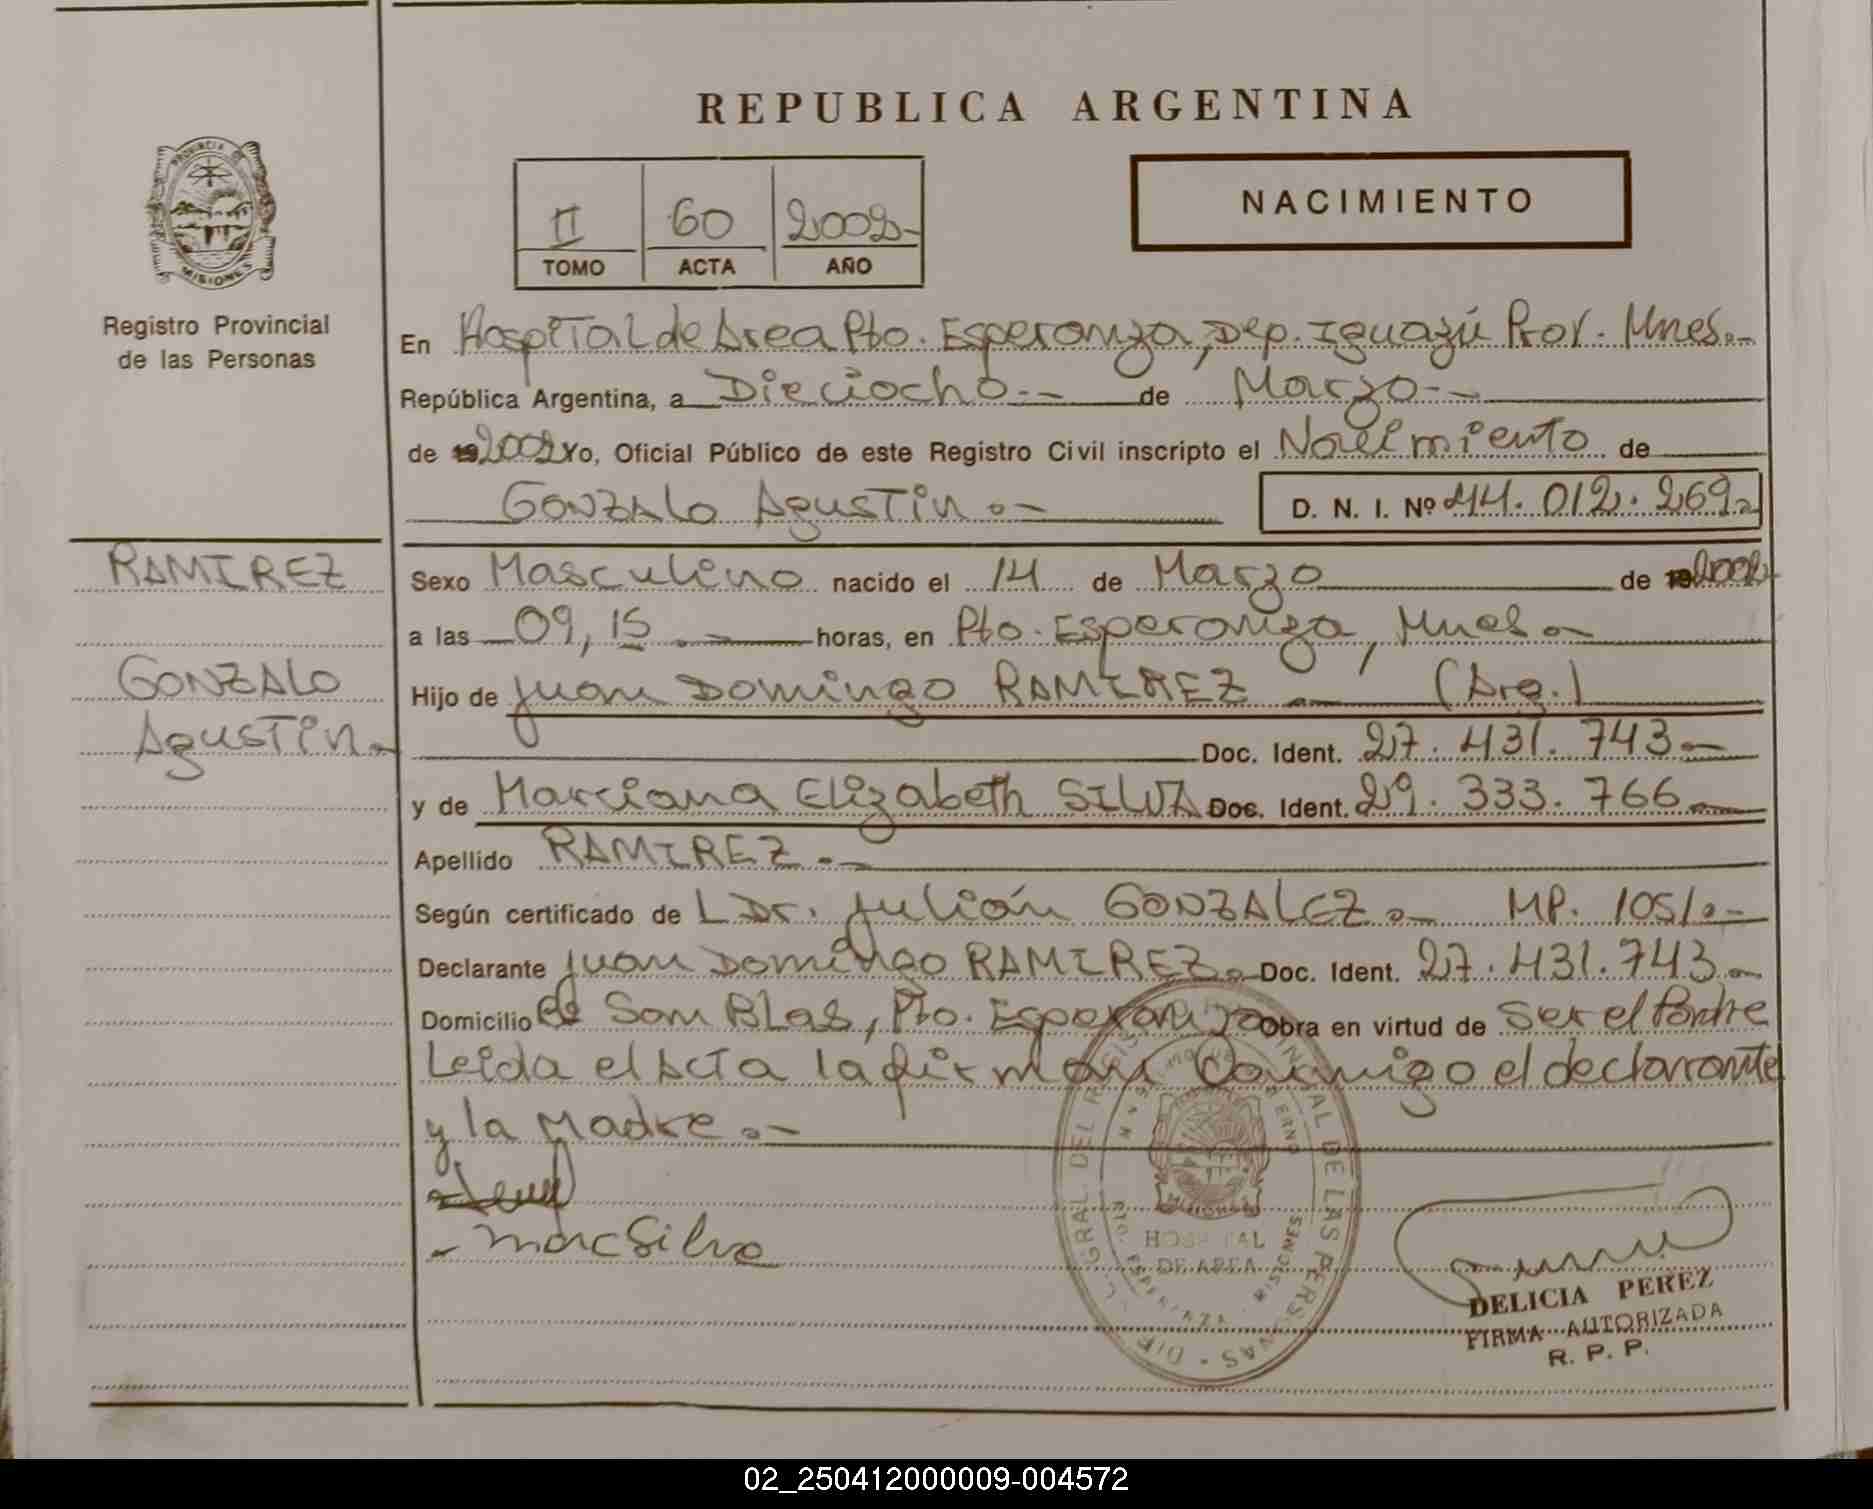 REPUBLICA ARGENTINA
PROVINCIA DE
MISIONES
Registro Provincial
de las Personas
II 60 2002-
TOMO ACTA AÑO
NACIMIENTO
En Hospital de Area Pto. Esperanza, Dep. Iguazú Prov. Mnes.-
República Argentina, a Dieciocho.- de Marzo.-
de 19 2002 Yo, Oficial Público de este Registro Civil inscripto el Nacimiento de
Gonzalo Agustin.-
D. N. I. Nº 44.012.269.-
RAMIREZ
GONZALO
Agustin.-
Sexo Masculino nacido el 14 de Marzo de 19 2002
a las 09,15.- horas, en Pto. Esperanza, Mnes.-
Hijo de Juan Domingo RAMIREZ.- (Arg.)
Doc. Ident. 27.431.743.-
y de Marciana Elizabeth SILVA Doc. Ident. 29.333.766.-
Apellido RAMIREZ.-
Según certificado de L Dr. Julián GONZALEZ.- MP. 1051.-
Declarante Juan Domingo RAMIREZ.- Doc. Ident. 27.431.743.-
Domicilio Bº San Blas, Pto. Esperanza Obra en virtud de Ser el Padre
Leida el Acta la firman Conmigo el declarante
y la Madre.-
MarcSilva
HOSPITAL
DE AREA
DELICIA PEREZ
FIRMA AUTORIZADA
R. P. P.
02_250412000009-004572